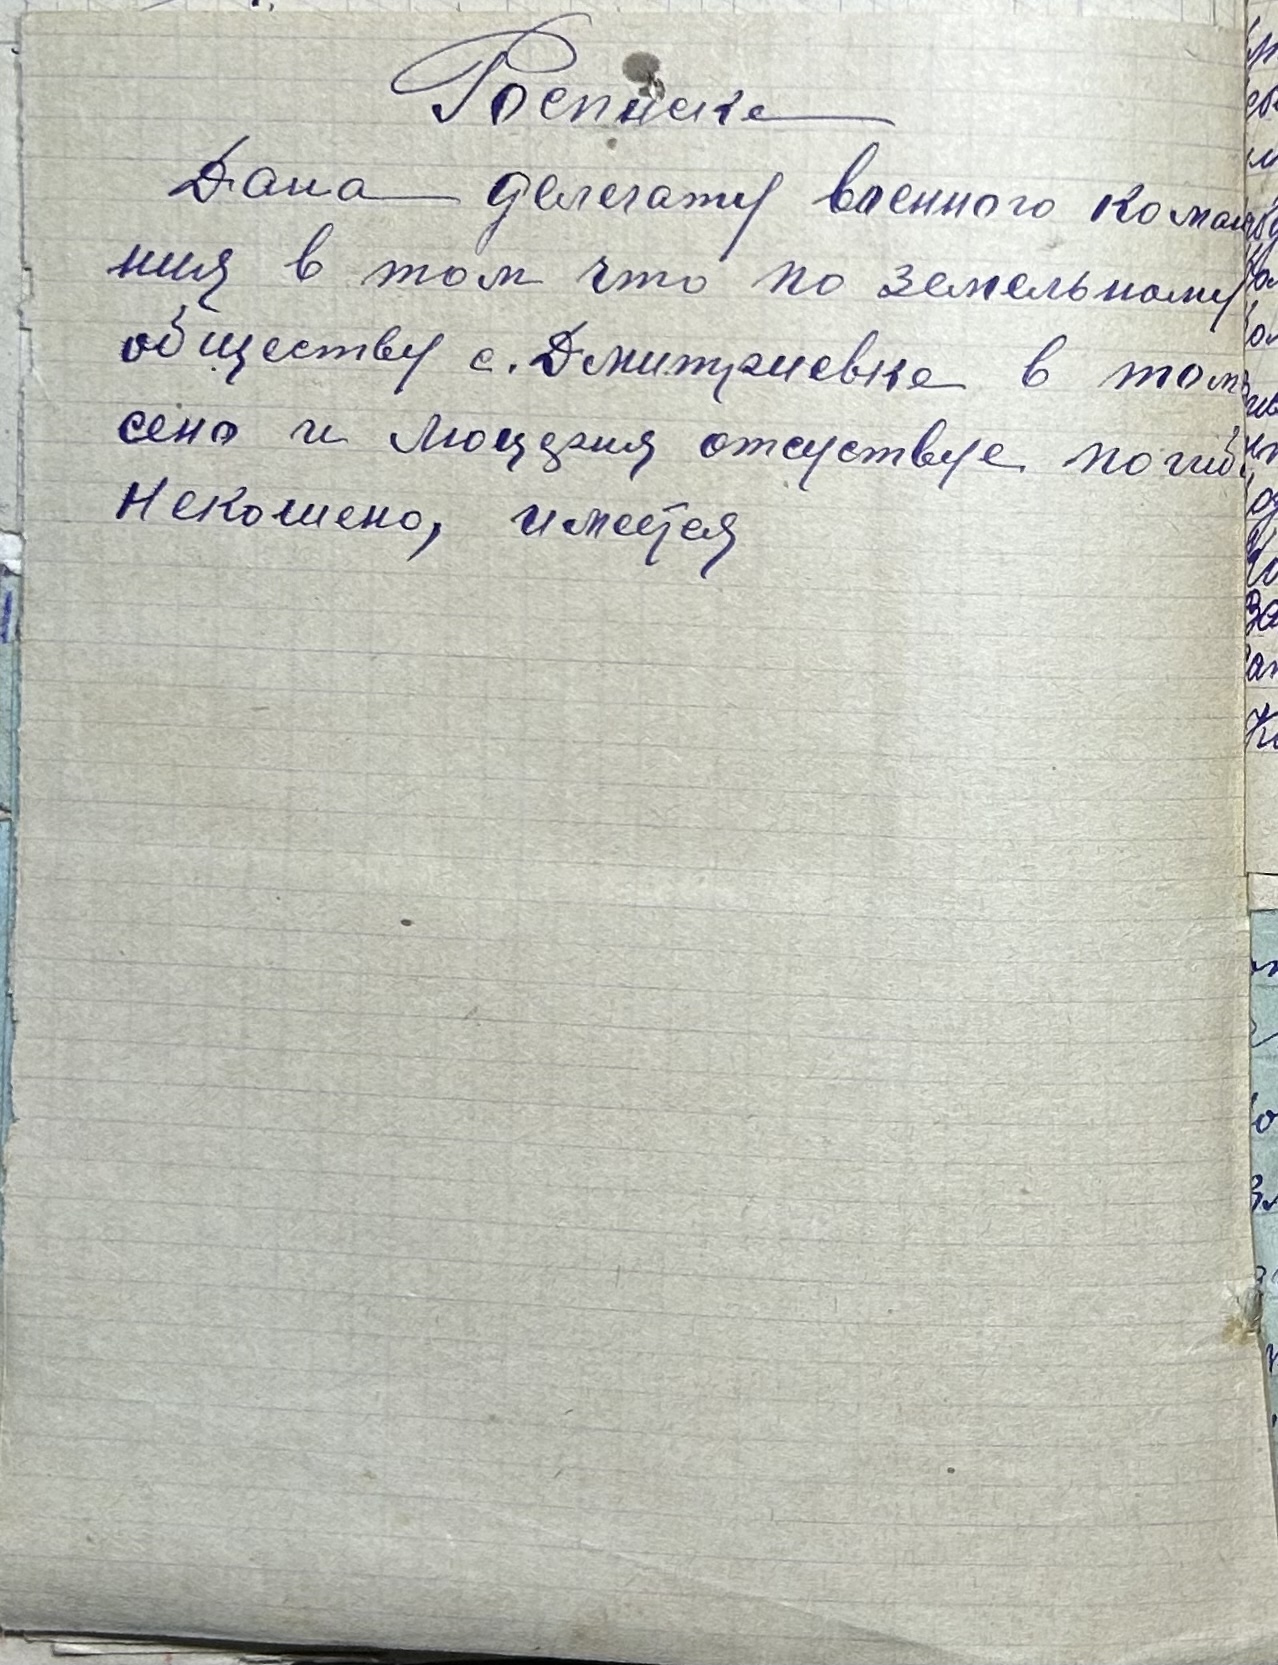 Росписка
Дана делегату военного коман
ния в том что по земельному
обществу с. Дмитриевке в том
сено и люцерния отсуствуе погиб
Некошено, имеется